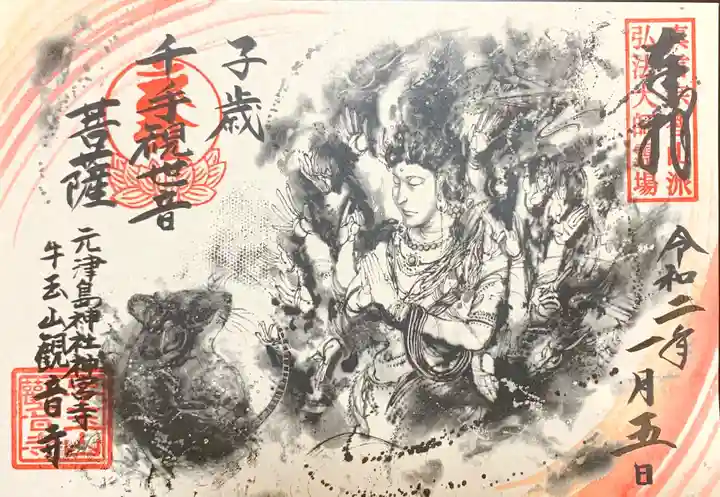 奉拝
真言宗豊山派
弘法大師霊場
令和二年一月五日
子歳
千手観世音
菩薩
元津島神社神宮寺
牛玉山観音寺